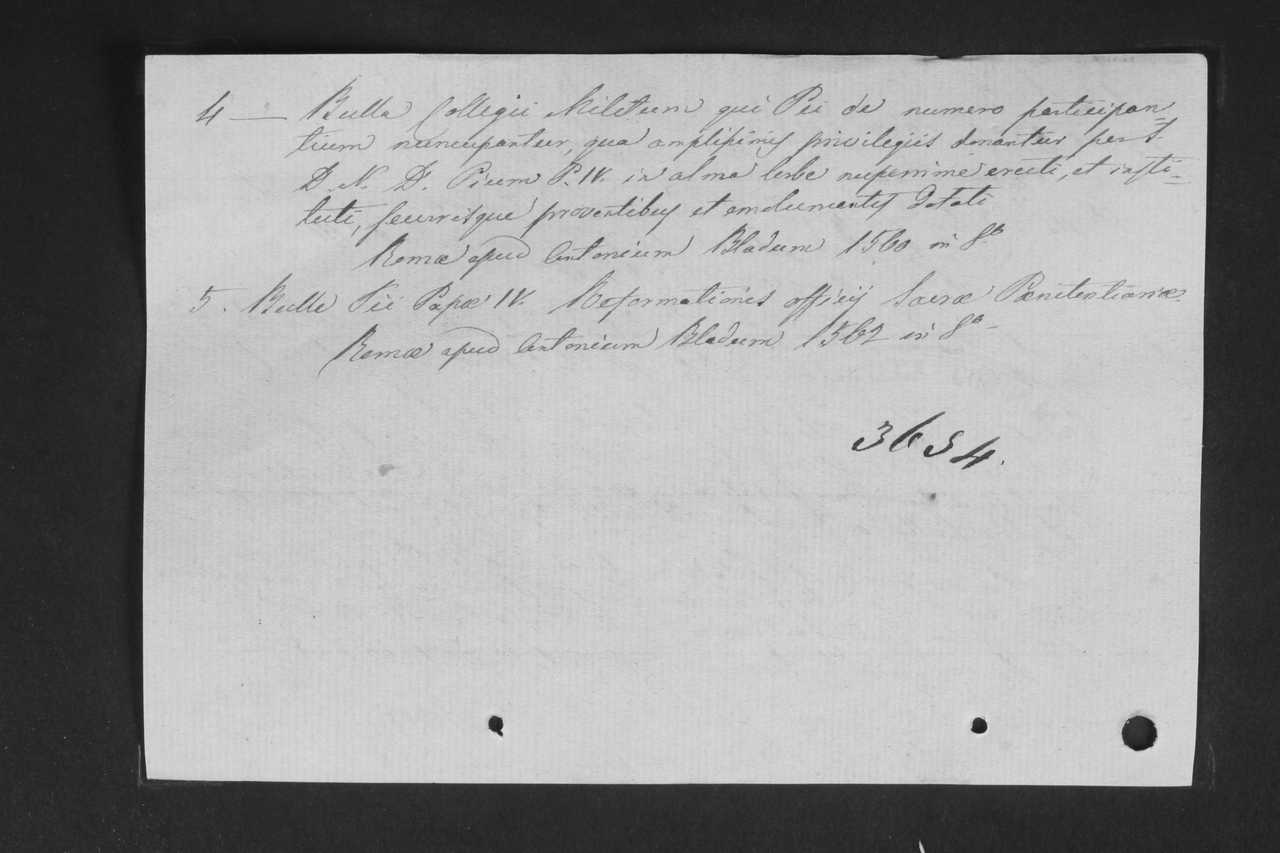 4 — Bulla Collegii Militum qui Pii de numero participan=
tium nuncupantur, qua amplissimis privilegiis donantur per S.
D. N. D. Pium P. IV. in alma Urbe nuperrime erecti, et insti=
tuti, suisque proventibus et emolumentis dotati
Romæ apud Antonium Bladum 1560 in 8º
5. Bulla Pii Papæ IV. Reformationis officij Sacræ Pœnitentiariæ
Romæ apud Antonium Bladum 1562 in 8º –
3654.